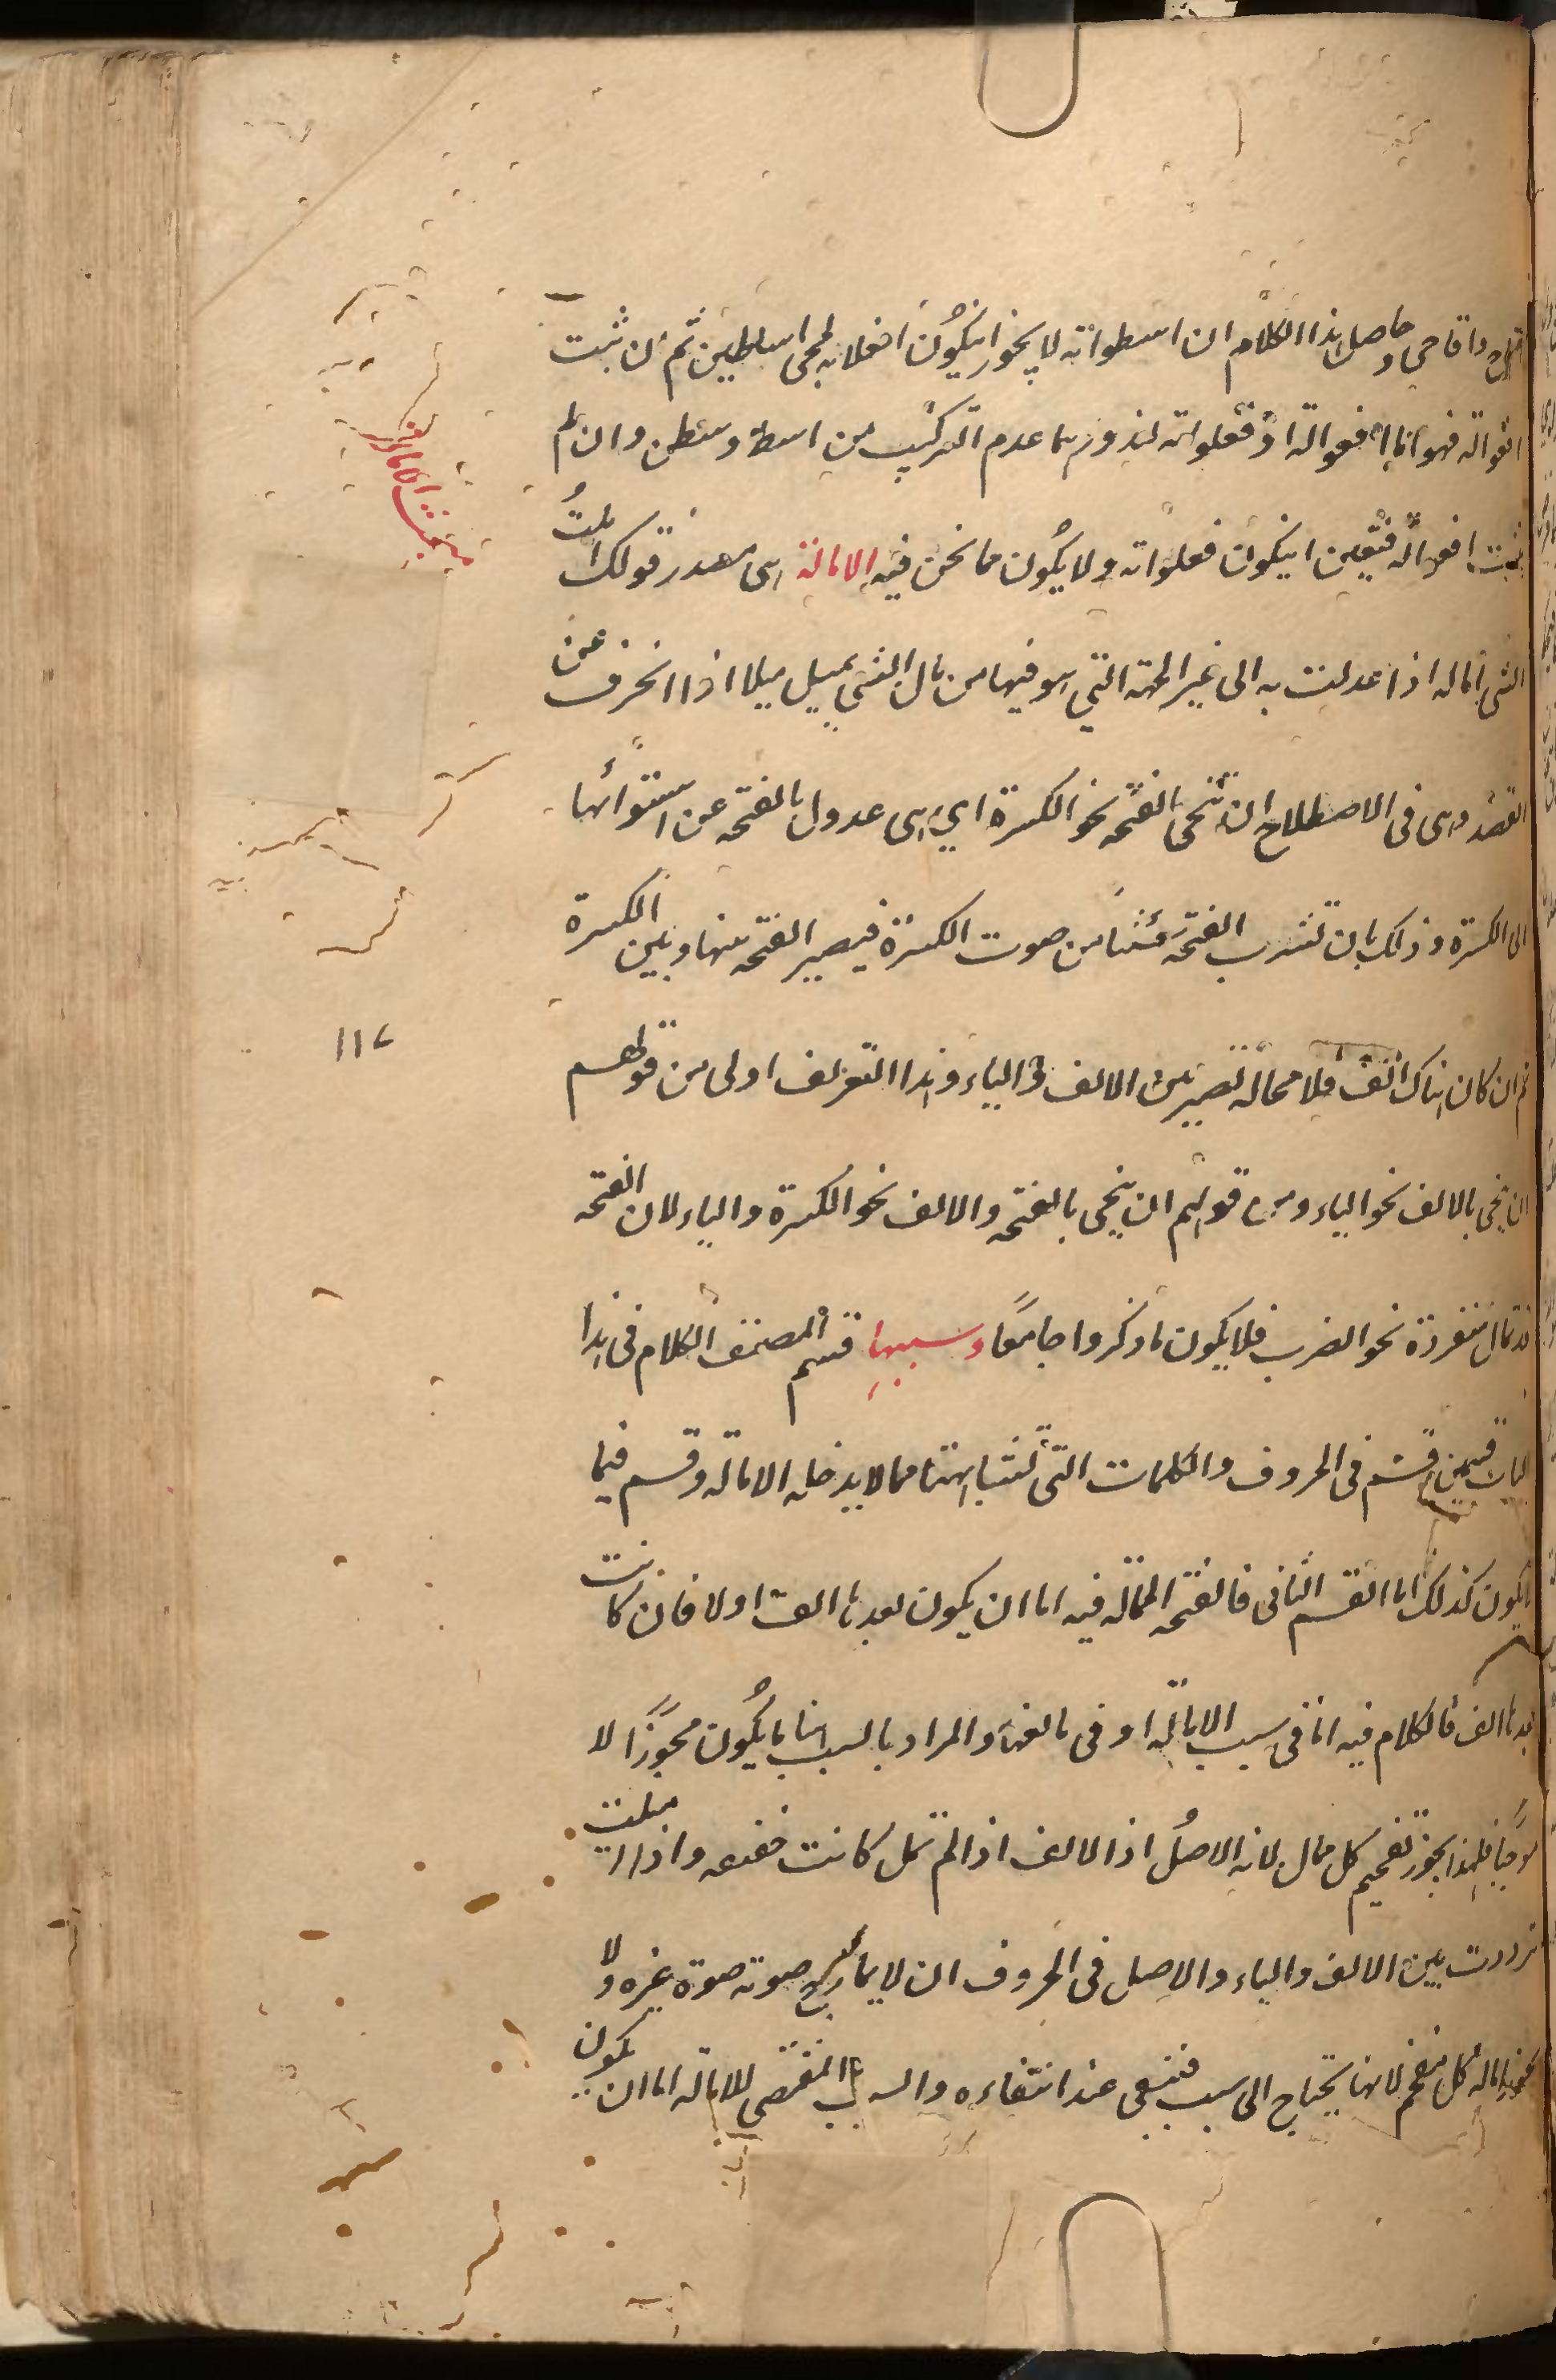 واقاحى وحاصل هذا الكلام ان اسطوانه لا يجوز ان يكون افعلانه لمجى اساطين ثم ان ثبت
افعواله فهو اما افعواله او فعلوانه لندور هما عدم التركيب من اسط وسطن وان لم
يثبت افعواله فتعين ان يكون فعلوانه ولا يكون مما نحن فيه الامالة اى مصدر قولك املتُ
الشى اماله اذا عدلت به الى غير الجهة التي هو فيها من مال الشى يميل ميلا اذا انحرف عن
القصد وهى فى الاصطلاح ان تنحى بالفتحه نحو الكسرة اي هى عدول بالفتحه عن استوائها
الى الكسرة وذلك بان تشرب الفتحة شيئا من صوت الكسرة فيصير الفتحه بينها وبين الكسرة
ثم ان كان هناك الف فلا محالة تصير بين الالف والياء وهذا التعريف اولى من قولهم
ان ينحى بالالف نحو الياء ومن قولهم ان ينحى بالفتحه والالف نحو الكسرة والياء لان الفتحه
قد تمال منفردة نحو الضرر فلا يكون ما ذكروا جامعًا وسببها قسم المصنف الكلام فى هذا
الباب قسمين قسم فى الحروف والكلمات التى تشبا بهتها مما لا يدخله الاماله وقسم فيما
لا يكون كذلك اما القسم الثانى فالفتحه الممالة فيه اما ان يكون بعدها الف اولا فان كانت
بعدها الف فالكلام فيه اما فى سبب الامالة او فى مانعها والمراد بالسبب هنا ما يكون مجوزًا لا
موجبا فلهذا يجوز تفخيم كل ممال لانه الاصل اذ الالف اذا لم تمل كانت حقيقه واذا اميلت
ترددت بين الالف والياء والاصل فى الحروف ان لا يمازج صوته صوة غيره ولا
يجوز امالة كل مفخم لانها يحتاج الى سبب فتنتفى عند انتفاءه والسبب المقتضى للامالة اما ان يكون
مبحث الامالة
١١٧